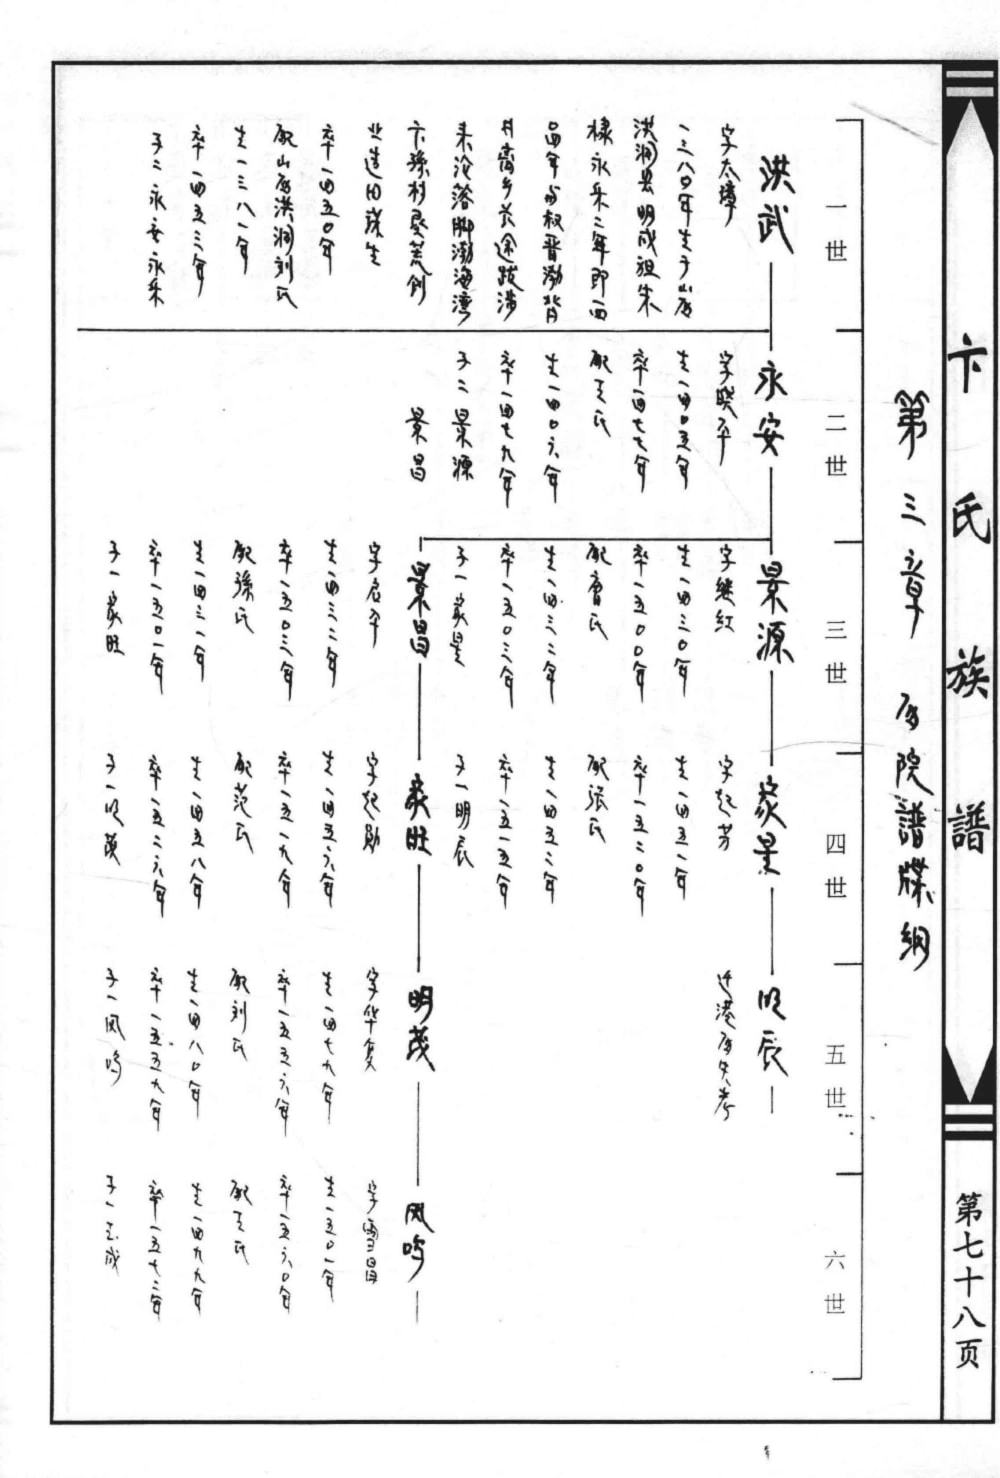 卞氏族譜
第七十八页
第三章 居院譜牒綱
一世
洪武
字太璋
一三八〇年生于山
洪洞县明成祖朱
棣永乐二年即一四
四年与叔晋渤背
井离乡长途跋涉
来沧落脚渤海湾
卞孫村垦荒创
业
卒一四五〇年
配山居洪洞刘氏
生一三八一年
卒一四五三年
子二永安永乐
二世
永安
字晓平
生一四〇五年
卒一四七七年
配王氏
生一四〇六年
卒一四七九年
子二景源
景昌
三世
景源
字继红
生一四三〇年
卒一五〇〇年
配曹氏
生一四三二年
卒一五〇三年
子一家星
景昌
字启平
生一四三二年
卒一五〇三年
配孫氏
生一四三一年
卒一五〇一年
子一家旺
四世
家星
字起芳
生一四五一年
卒一五二〇年
配張氏
生一四五二年
卒一五一五年
子一明辰
家旺
字起勛
生一四五六年
卒一五一九年
配范氏
生一四五八年
卒一五二六年
子一明茂
五世
明辰
迁港居失考
明茂
字华复
生一四七九年
卒一五五六年
配刘氏
生一四八〇年
卒一五五九年
子一凤鸣
六世
凤鸣
字雪昌
生一五〇一年
卒一五六〇年
配王氏
生一四九九年
卒一五七二年
子一志成